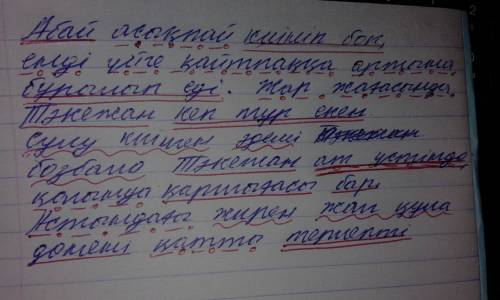 Абай асықпай киініп боп,
енді үйге қайтпаққа артына
бұрылып еді. Жар жағасында
Тәкежан кеп тұр екен
Сулу киінген әдемі
бозбала Тәкежан ат үстінде,
қолында қарғысы бар.
Астындағы жирен жал құла
дөнені қатты терлепті